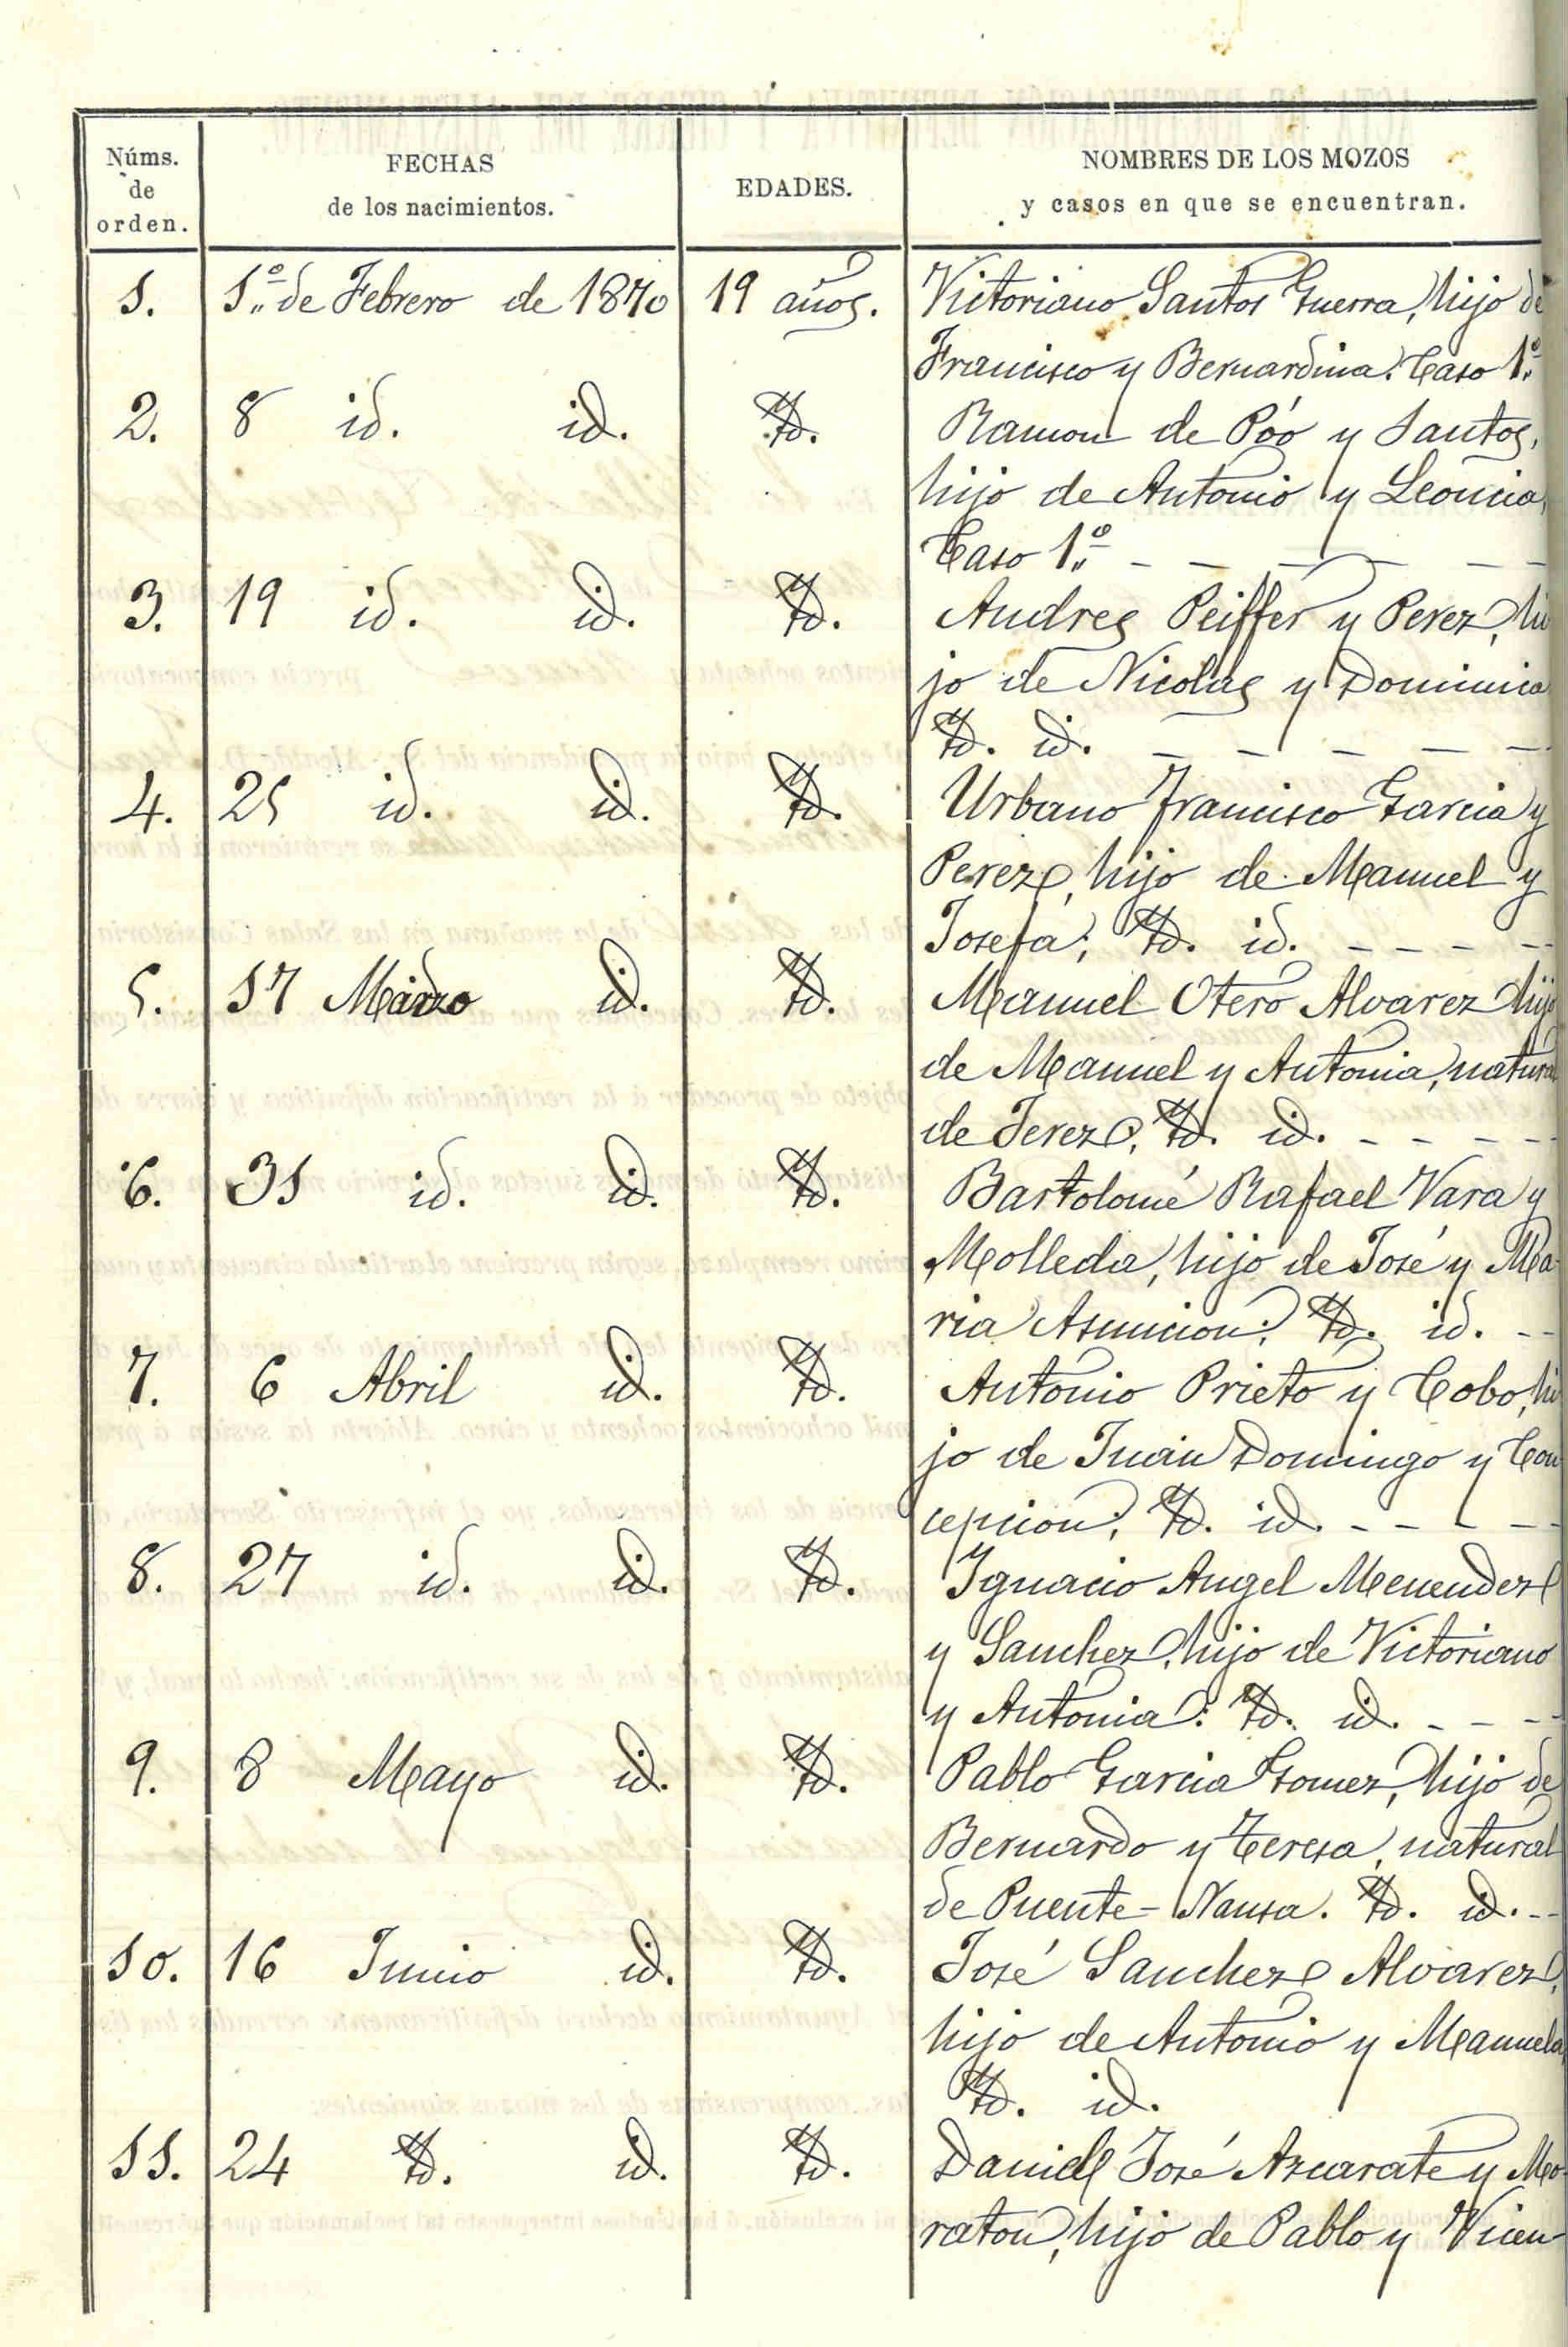 Núms. de orden.
FECHAS de los nacimientos.
EDADES.
NOMBRES DE LOS MOZOS y casos en que se encuentran.
1. 1.º de Febrero de 1870 19 años. Victoriano Santos Guerra, hijo de
Francisco y Bernardina. Caso 1.º
2. 8 id. id. Id. Ramon de Póo y Santos,
hijo de Antonio y Leoncia,
Caso 1.º - - - - -
3. 19 id. id. Id. Andres Peiffer y Perez, hi
jo de Nicolas y Dominica
Id. id. - - - - -
4. 25 id. id. Id. Urbano Francisco Garcia y
Perez, hijo de Manuel y
Josefa; Id. id. - - - -
5. 17 Marzo id. Id. Manuel Otero Alvarez hijo
de Manuel y Antonia, natural
de Jerez. Id. id. - - - -
6. 31 id. id. Id. Bartolomé Rafael Vara y
Molleda, hijo de José y Ma-
ria Asuncion; Id. id. - -
7. 6 Abril id. Id. Antonio Prieto y Cobo, hi
jo de Juan Domingo y Con
cepcion; Id. id. - - - - -
8. 27 id. id. Id. Ignacio Angel Menendez
y Sanchez, hijo de Victoriano
y Antonia: Id. id. - - - -
9. 8 Mayo id. Id. Pablo Garcia Gomez, hijo de
Bernardo y Teresa, natural
de Puente-Nansa. Id. id. - -
10. 16 Junio id. Id. José Sanchez Alvarez,
hijo de Antonio y Manuela
Id. id.
11. 24 Id. id. Id. Daniel José Azcarate y Mo-
raton, hijo de Pablo y Vicen-